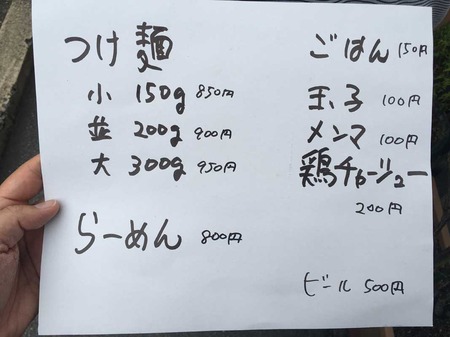 つけ麺
小 150g 850円
並 200g 900円
大 300g 950円
らーめん 800円
ごはん 150円
玉子 100円
メンマ 100円
鶏チャーシュー
200円
ビール 500円